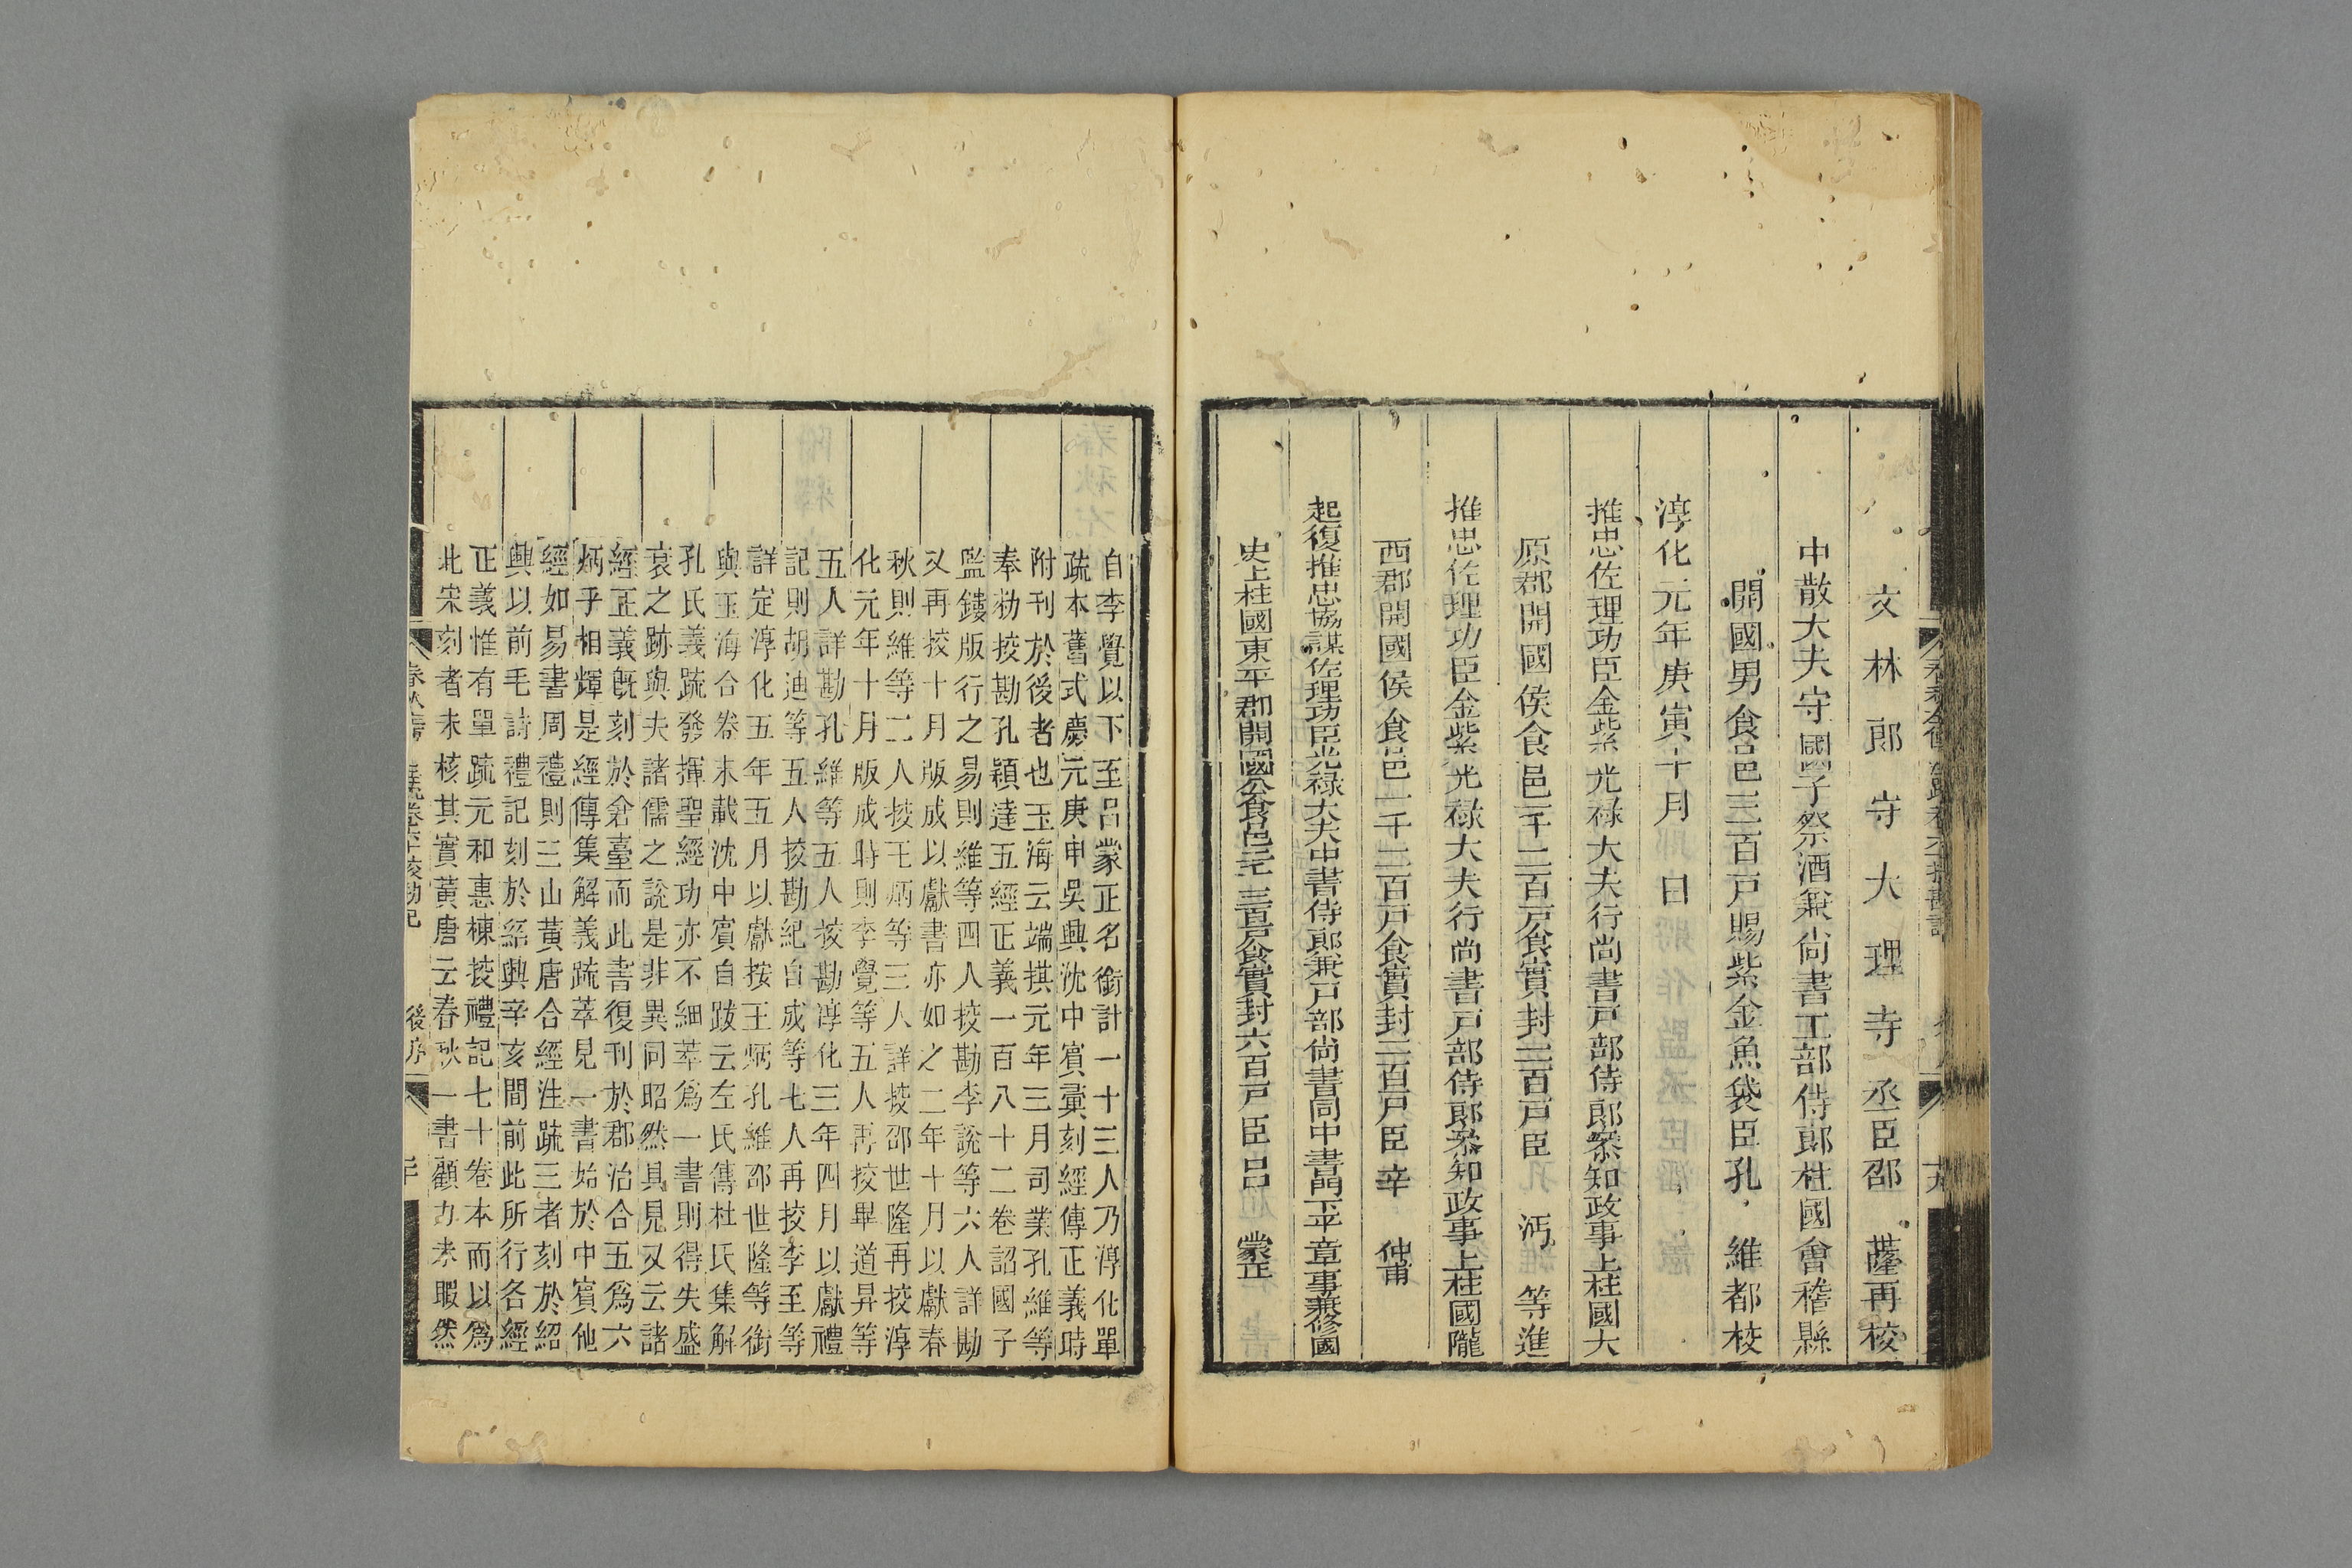 文林郎守大理寺丞臣邵 世隆再校
中散大夫守國子祭酒兼尚書工部侍郎柱國會稽縣
開國男食邑三百戸賜紫金魚袋臣孔 維都校
淳化元年庚寅十月 日
推忠佐理功臣金紫光祿大夫行尚書戸部侍郎叅知政事上柱國大
原郡開國侯食邑一千二百戸食實封二百戸臣 沔 等進
推忠佐理功臣金紫光祿大夫行尚書戸部侍郎叅知政事上柱國隴
西郡開國侯食邑一千二百戸食實封二百戸臣辛 仲甫
起復推忠協謀佐理功臣光祿大夫中書侍郎兼戸部尚書同中書門下平章事兼修國
史上柱國東平郡開國公食邑三千三百戸食實封六百戸臣呂 蒙正
自李覺以下至呂蒙正名銜計一十三人乃淳化單
疏本舊式慶元庚申吳興沈中賓彚刻經傳正義時
附刊於後者也玉海云端拱元年三月司業孔維等
奉勅挍勘孔穎達五經正義一百八十二卷詔國子
監鏤版行之易則維等四人挍勘李說等六人詳勘
又再挍十月版成以獻書亦如之二年十月以獻春
秋則維等二人挍王炳等三人詳挍邵世隆再挍淳
化元年十月版成詩則李覺等五人再挍畢道昇等
五人詳勘孔維等五人挍勘淳化三年四月以獻禮
記則胡迪等五人挍勘紀自成等七人再挍李至等
詳定淳化五年五月以獻按王炳孔維邵世隆等銜
與玉海合卷末載沈中賓自跋云左氏傳杜氏集解
孔氏義疏發揮聖經功亦不細萃爲一書則得失盛
衰之跡與夫諸儒之說是非異同昭然具見又云諸
經正義旣刻於倉臺而此書復刊於郡治合五爲六
炳乎相輝是經傳集解義疏萃見一書始於中賓他
經如易書周禮則三山黃唐合經注疏三者刻於紹
興以前毛詩禮記刻於紹興辛亥間前此所行各經
正義惟有單疏元和惠棟挍禮記七十卷本而以爲
北宋刻者未核其實黃唐云春秋一書顧力未暇然